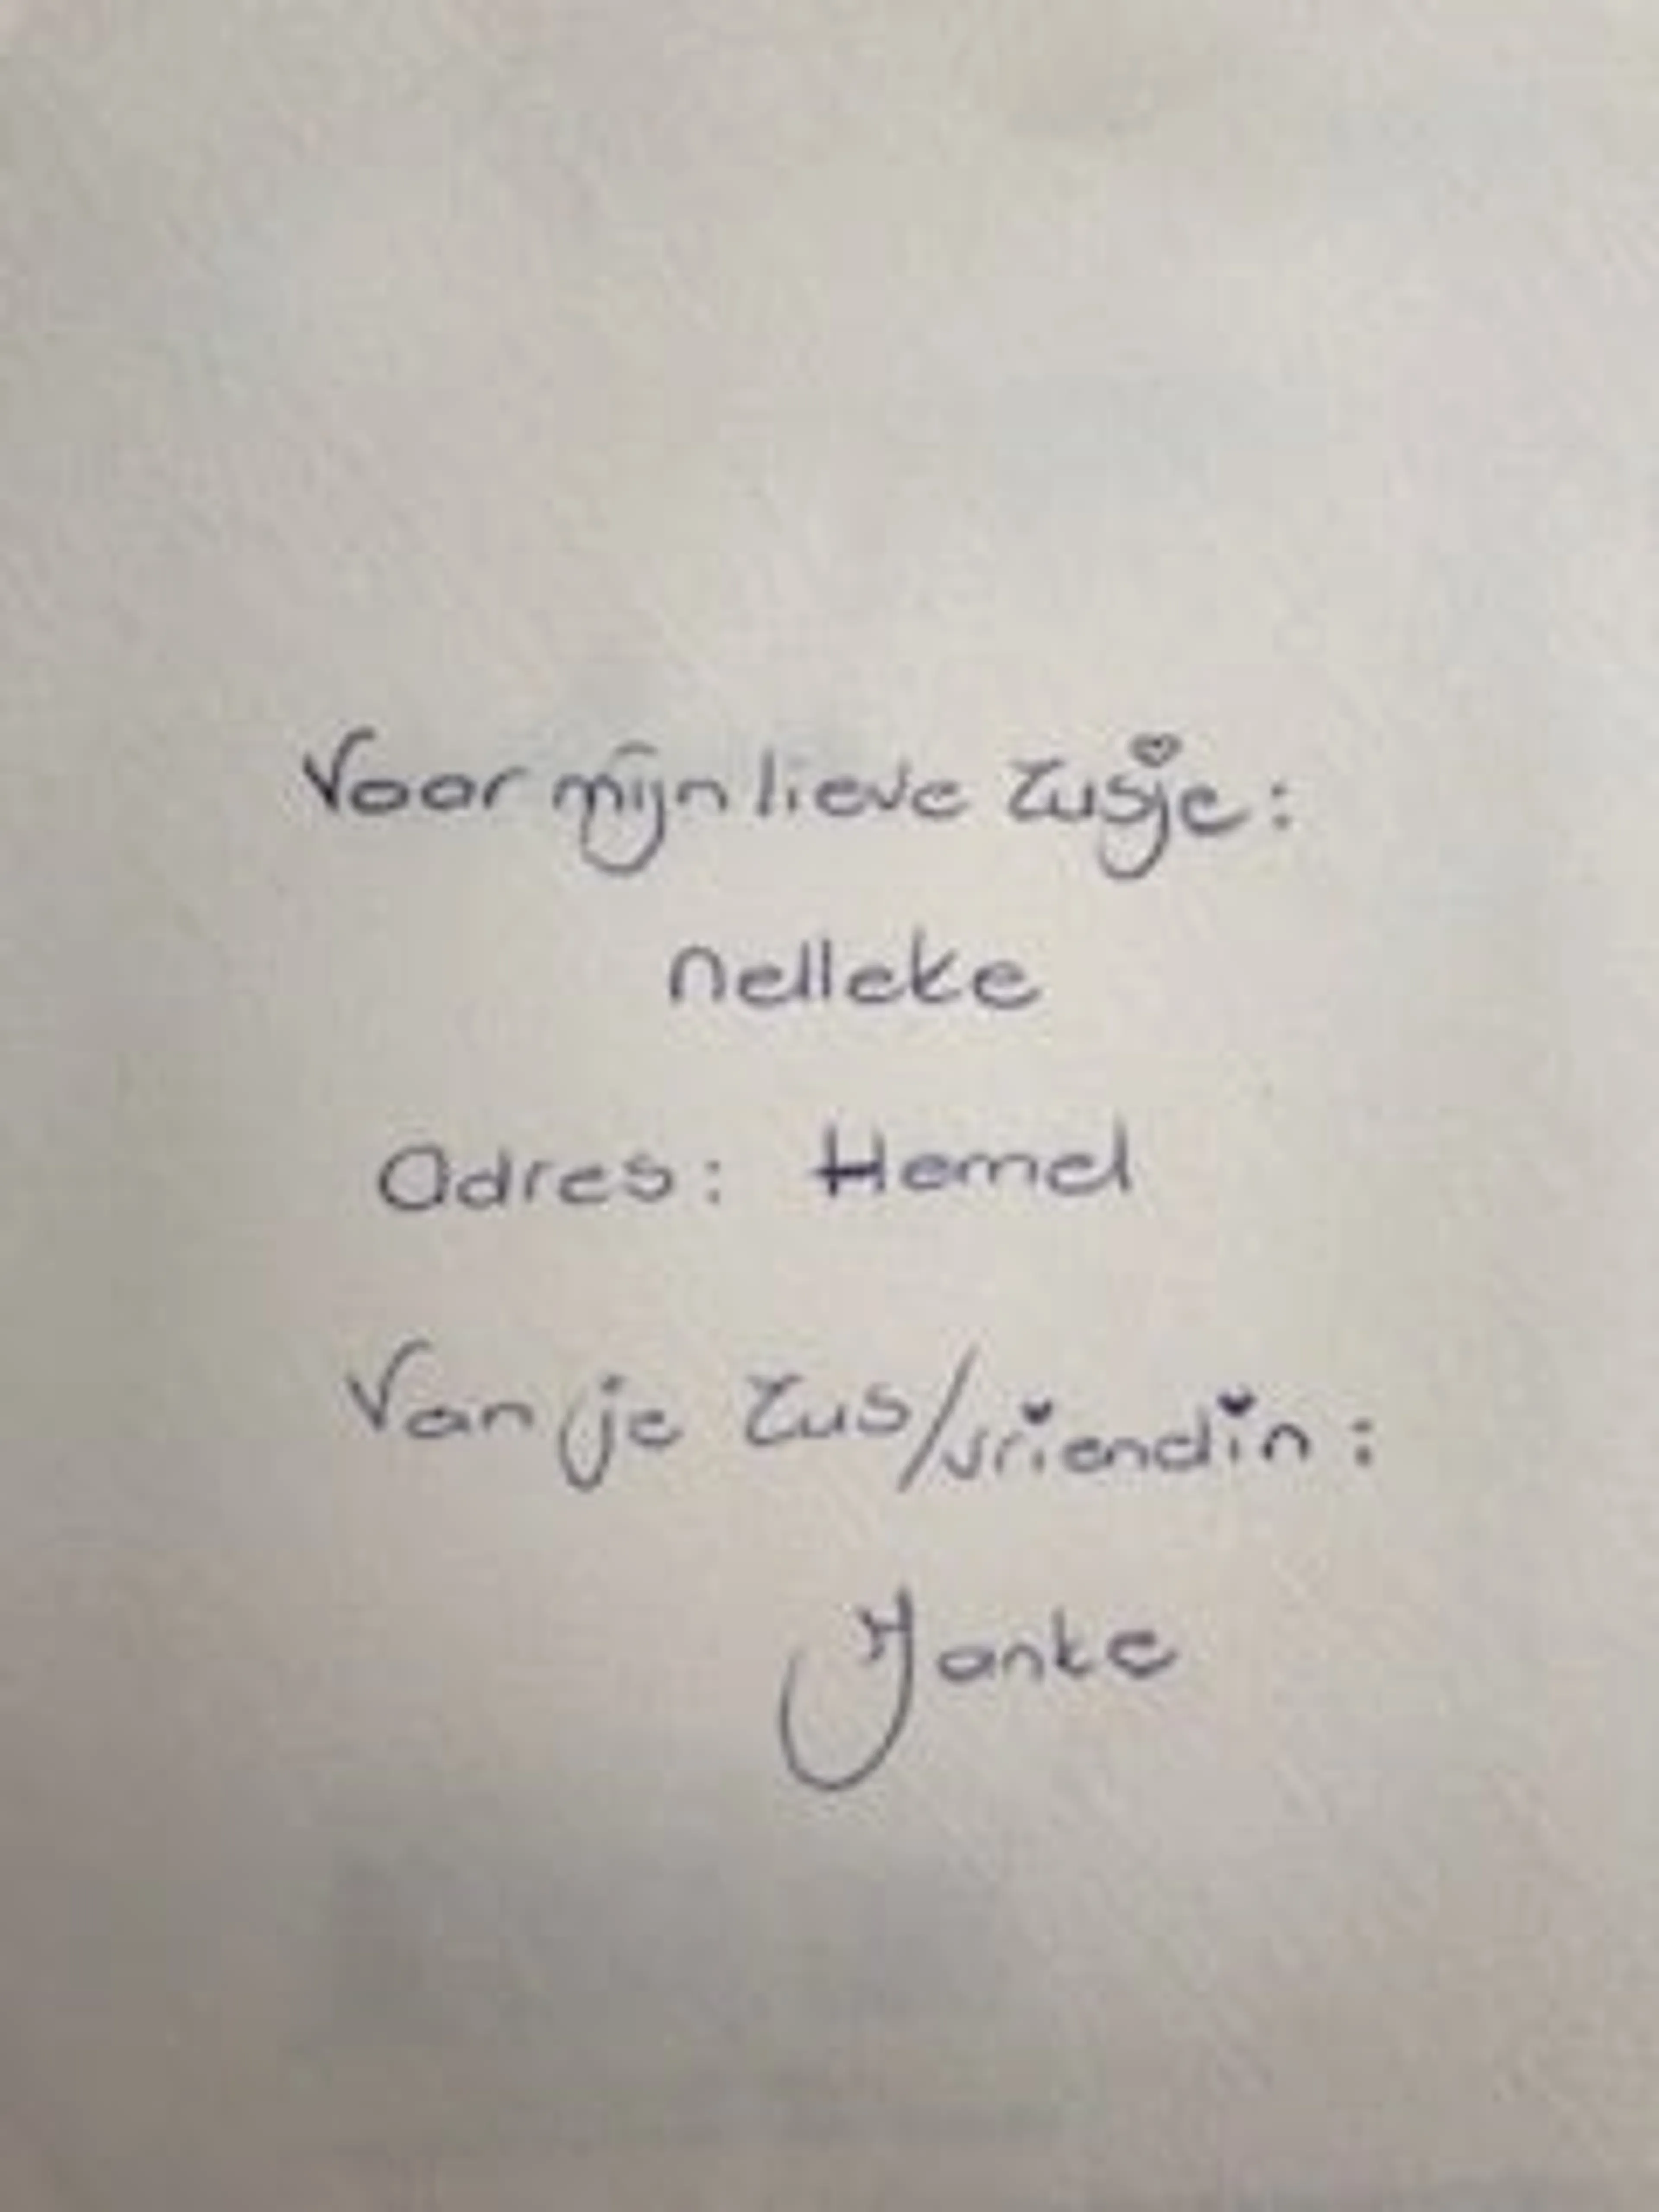 Voor mijn lieve zusje:
Nelleke
Adres: Hemel
Van je zus/vriendin:
Janke